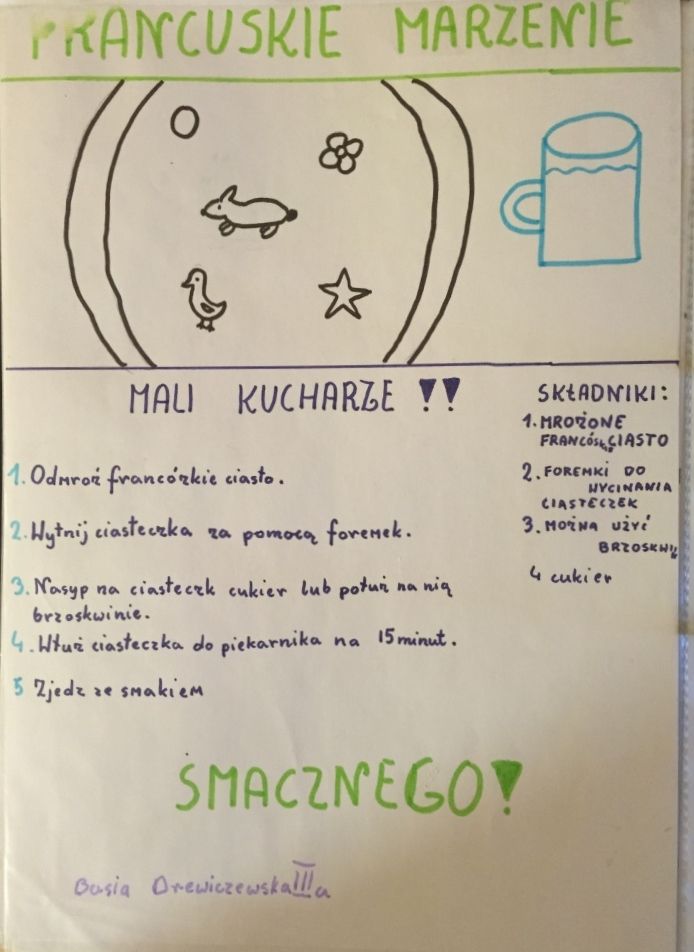 FRANCUSKIE MARZENIE
MALI KUCHARZE !!
1. Odmroź francózkie ciasto.
2. Wytnij ciasteczka za pomocą foremek.
3. Nasyp na ciasteczk cukier lub połuż na nią
brzoskwinie.
4. Włuż ciasteczka do piekarnika na 15 minut.
5 Zjedz ze smakiem
SKŁADNIKI:
1. MROŻONE
CIASTO
2. FOREMKI DO
WYCINANIA
CIASTECZEK
3. MOŻNA UŻYĆ
BRZOSKWIŃ
4 cukier
SMACZNEGO!
Basia Drewiczewska IIIa